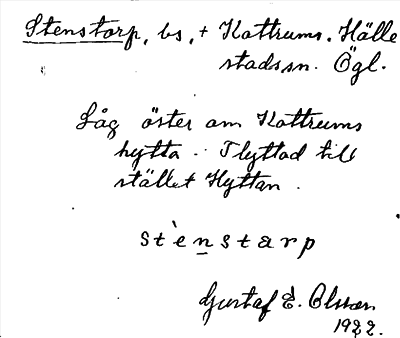 Stenstorp, bs, + Kattrums. Hälle
stadssn. Ögl.
Låg öster om Kattrums
hytta. Flyttad till
stället Hyttan.
st`enstarp
Gustaf E. Olsson
1922.